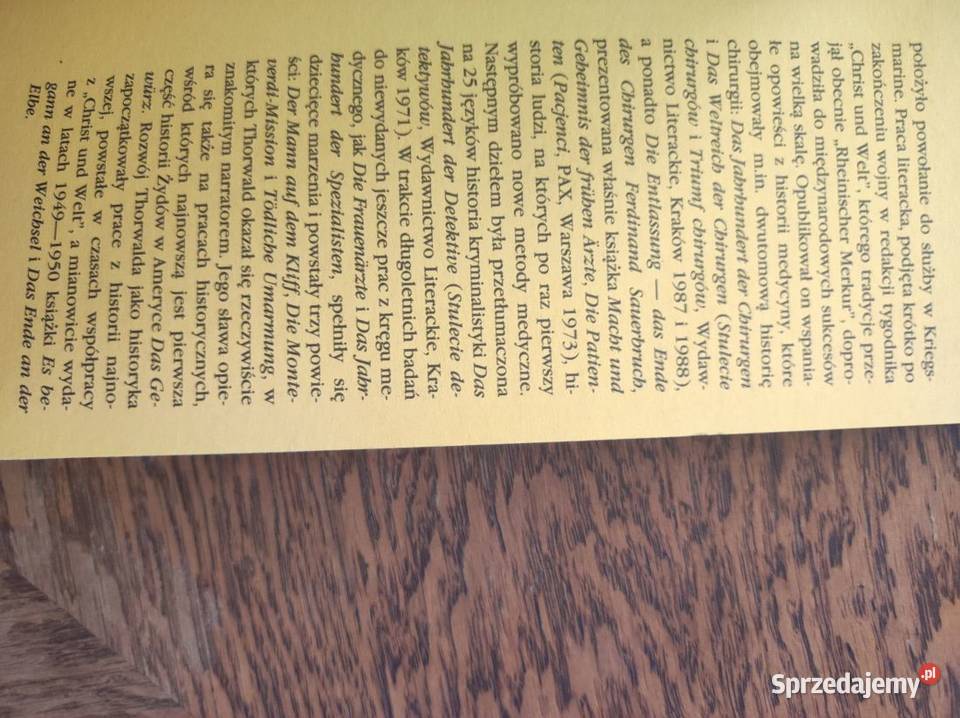 położyło powołanie do służby w Kriegs-
marine. Praca literacka, podjęta krótko po
zakończeniu wojny w redakcji tygodnika
„Christ und Welt", którego tradycje prze-
jął obecnie „Rheinischer Merkur", dopro-
wadziła do międzynarodowych sukcesów
na wielką skalę. Opublikował on wspania-
łe opowieści z historii medycyny, które
obejmowały m.in. dwutomową historię
chirurgii: Das Jahrhundert der Chirurgen
i Das Weltreich der Chirurgen (Stulecie
chirurgów i Triumf chirurgów, Wydaw-
nictwo Literackie, Kraków 1987 i 1988),
a ponadto Die Entlassung — das Ende
des Chirurgen Ferdinand Sauerbruch,
prezentowana właśnie książka Macht und
Geheimnis der frühen Ärzte, Die Patien-
ten (Pacjenci, PAX, Warszawa 1973), hi-
storia ludzi, na których po raz pierwszy
wypróbowano nowe metody medyczne.
Następnym dziełem była przetłumaczona
na 25 języków historia kryminalistyki Das
Jahrhundert der Detektive (Stulecie de-
tektywów, Wydawnictwo Literackie, Kra-
ków 1971). W trakcie długoletnich badań
do niewydanych jeszcze prac z kręgu me-
dycznego, jak Die Frauenärzte i Das Jahr-
hundert der Spezialisten, spełniły się
dziecięce marzenia i powstały trzy powie-
ści: Der Mann auf dem Kliff, Die Monte-
verdi-Mission i Tödliche Umarmung, w
których Thorwald okazał się rzeczywiście
znakomitym narratorem. Jego sława opie-
ra się także na pracach historycznych,
wśród których najnowszą jest pierwsza
część historii Żydów w Ameryce Das Ge-
würz. Rozwój Thorwalda jako historyka
zapoczątkowały prace z historii najno-
wszej, powstałe w czasach współpracy
z „Christ und Welt", a mianowicie wyda-
ne w latach 1949—1950 książki Es be-
gann an der Weichsel i Das Ende an der
Elbe.
Sprzedajemy.pl